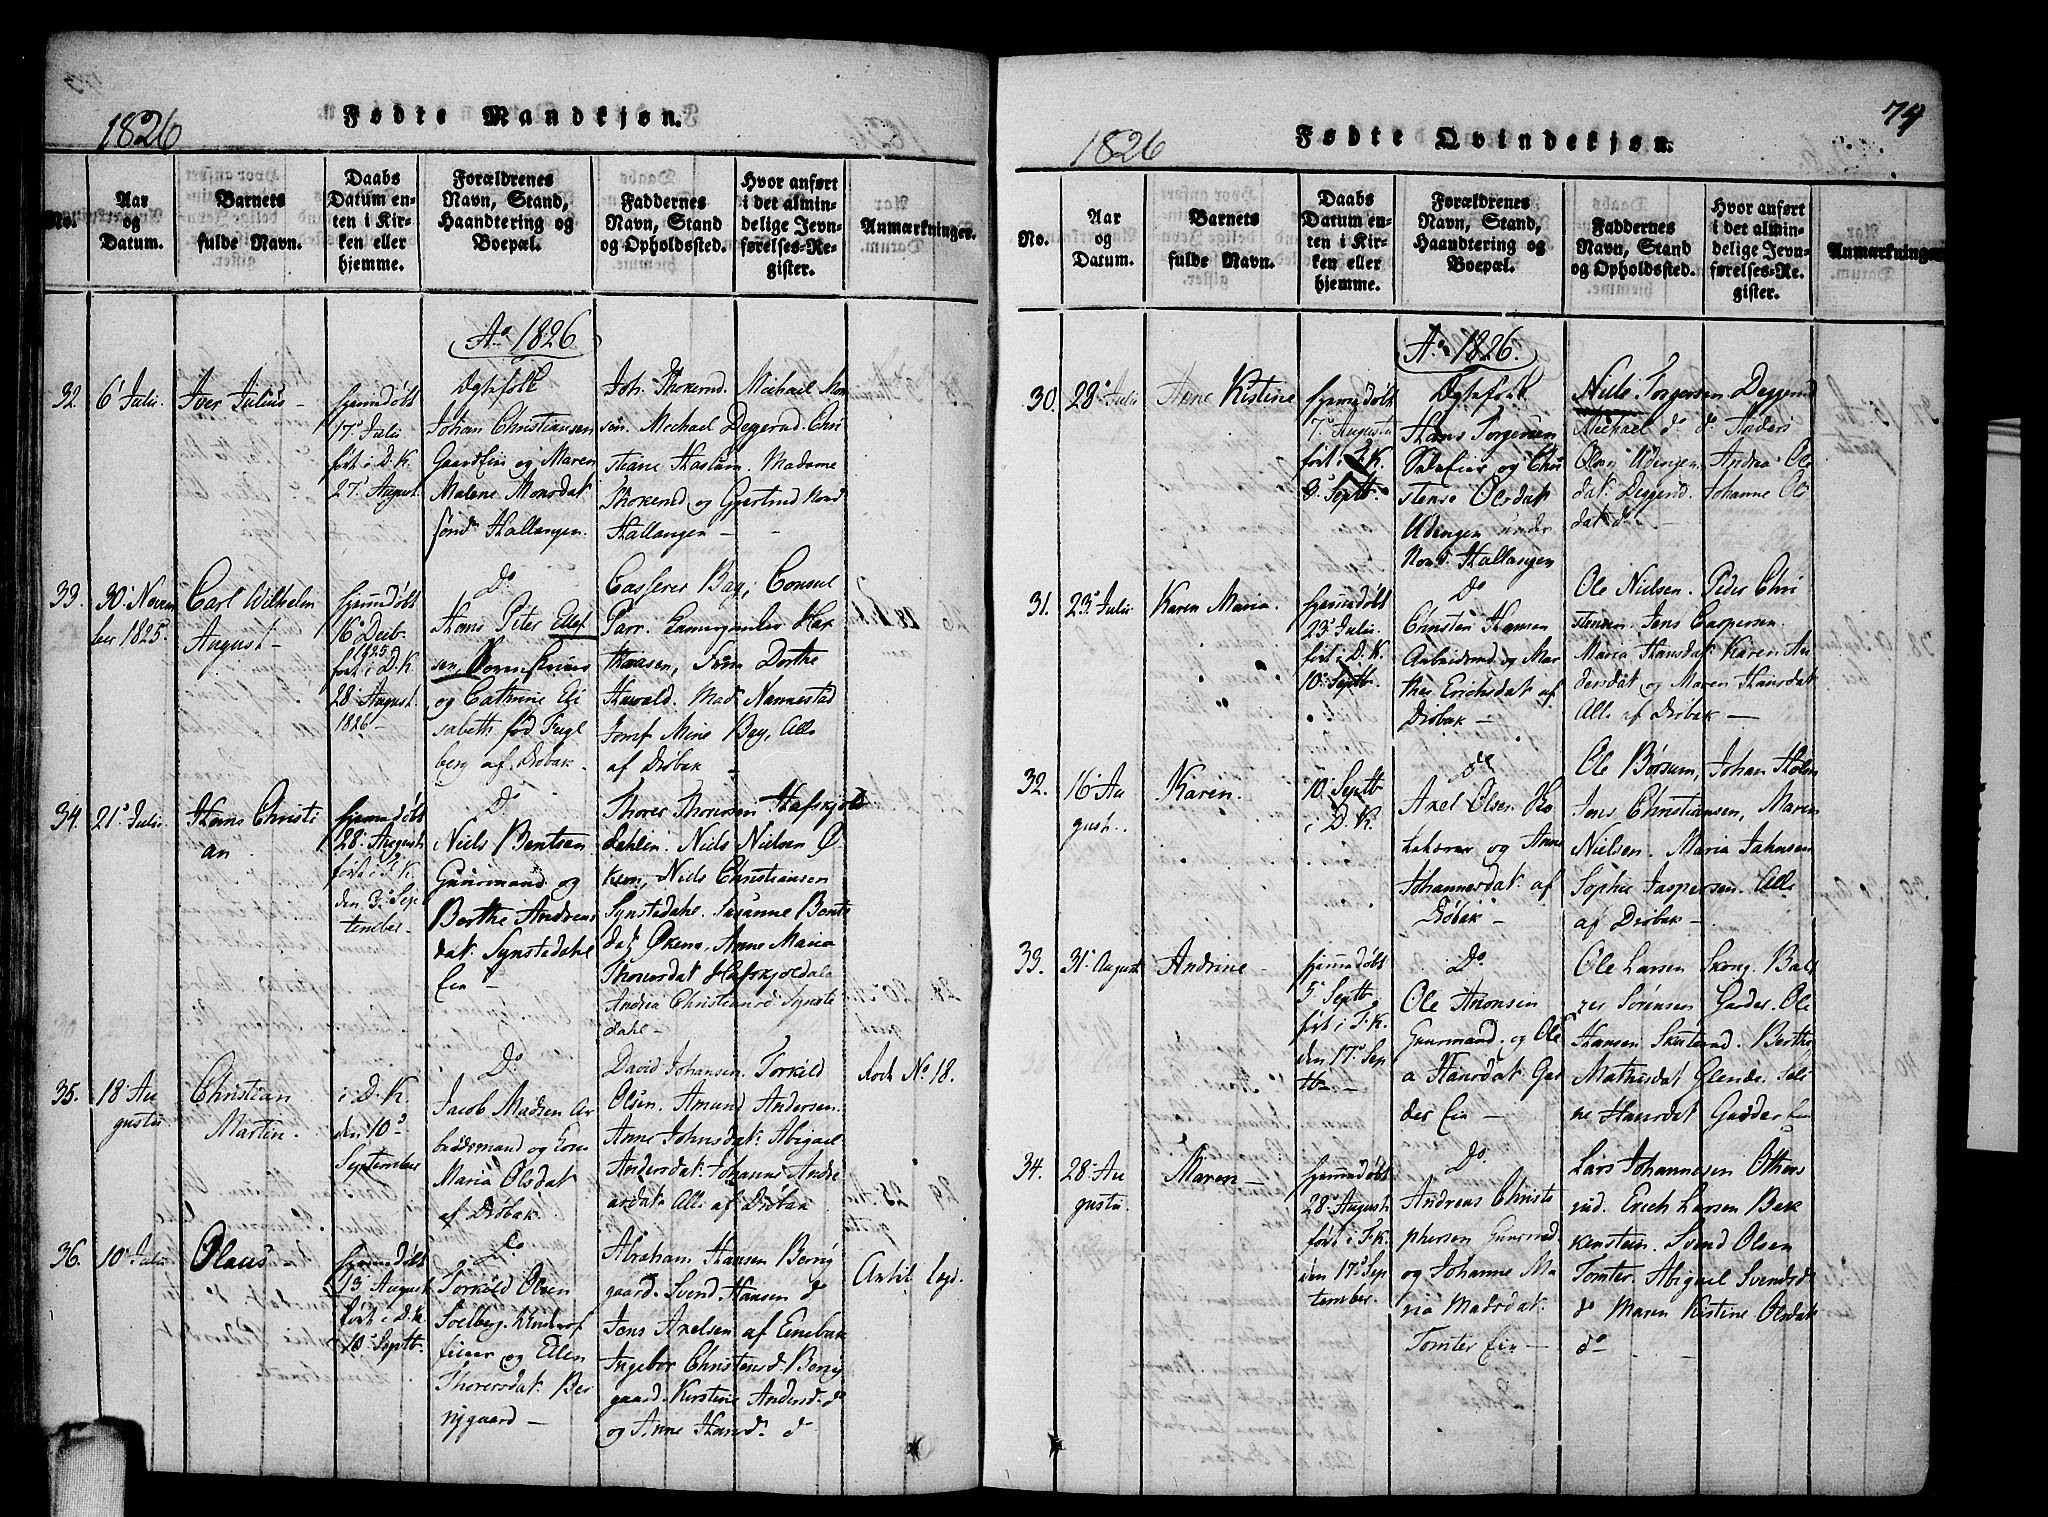 1826
Fødte Mandkjøn.
No.
Aar
og
Datum.
Barnets
fulde Navn.
Daabs
Datum en-
ten i Kir-
ken eller
hjemme.
Forældrenes
Navn, Stand,
Haandtering og
Boepæl.
Faddernes
Navn, Stand
og Opholdssted.
Hvor anført
i det almin-
delige Jevn-
førelses-Re-
gister.
Anmærkninger.
Ao 1826
32. 6 Julii.
Iver Julius
hjemmedøbt
17 Julii
ført i D. K.
27 August
Ægtefolk
Johan Christiansen
og Maren
Malene Monsdat
Hallangen.
Joh. Thokerud. Michael Mon
sen. Michael Degerud. Chri
stiane Haslum. Madame
Thokerud og Gjertrud Nord
Hallangen
33. 30 Novem
ber 1825.
Carl Wilhelm
August
hjemmedøbt
16 Decb.
1825
ført i D. K.
28 August
1826
Do
Hans Peter Ellef
sen,
og Cathrine Eli
sabeth fød Fugl
berg af Drøbak
Casserer Bay, Consul
Parr.
Dorthe
Hawald. Mad Nannestad
Jomf Mine Bay, Alle
af Drøbak
34. 21 Julii
Hans Christi
an
hjemmedøbt
28 August
ført i F. K.
den 3 Sep
tember
Do
Niels Bentsen
Gaarmand og
Berthe Andreas
dat. Synstedahl
Eie
Thorer Thoresen Hafskjold
dahlen. Niels Nielsen Ø
kern, Niels Christiansen
Synstedahl. Susanne Bents
dat Økern, Anne Maria
Thoresdat Hafskjoldal
Andrea Christiansd Synste
dahl
35. 18 Au
gusti
Christian
Martin.
i D. K.
den 10
September
Do
Jacob Madsen Ar
beidsmand og
Maria Olsdat
af Drøbak
David Johansen. Torkild
Olsen. Amund Andersen.
Anne Johnsdat. Abigael
Andersdat. Johanne Andre
asdat Alle af Drøbak
Rode No 18.
36. 10 Julii
Olaus
hjemmedøbt
13 August
ført i D. K.
10 Septb
Do
Torkild Olsen
Solberg.
og Ellen
Thoresdat. Ber
riggaard
Abraham Hansen Berrig
gaard. Svend Hansen do
Jens Axelsen af Enebak
Ingebor Christensd. Berrig
gaard. Kirstine Andersd. do
og Anne Hansd. do
74
1826
Fødte Qvindekjøn.
No.
Aar
og
Datum.
Barnets
fulde Navn.
Daabs
Datum en-
ten i Kir-
ken eller
hjemme.
Forældrenes
Navn, Stand,
Haandtering og
Boepæl.
Faddernes
Navn, Stand
og Opholdssted.
Hvor anført
i det almin-
delige Jevn-
førelses-Re-
gister.
Anmærkninger
Ao 1826.
30. 28 Julii
Anne Kistine
hjemmedøbt
7 Augusti
ført i F. K.
3 Septb.
Ægtefolk
Hans Torgersen
og Chri
stense Olsdat
Udengen under
Nord Hallangen
Niels Torgersen Degerud
Michael do do Anders
Olsen Udengen. Andrea Ols
dat. Deggerud. Johanne Ols
dat do
31. 23 Julii
Karen Maria.
hjemmedøbt
23 Julii
ført i D. K
10 Septb.
Do
Christen Hansen
Arbeidsmd og Mar
the Erichsdat af
Drøbak
Ole Nielsen. Peder Chri
stensen. Jens Caspersen.
Maria Hansdat Karen An
dersdat og Maren Hansdat
Alle af Drøbak
32. 16 Au
gusti.
Karen.
10 Septb
i D. K.
Do
Axel Olsen
og Anne
Johannesdat. af
Drøbak
Ole Børsum, Johan Holm
Jens Christiansen, Maren
Nielsen. Maria Jahnsen
Sophie Jaspersen. Alle
af Drøbak
33. 31 August
Andrine
hjemmedøbt
5 Septb
ført i F. K.
den 17 Sep
tb
Do
Ole Aronsen
Gaarmand. og Ole
a Hansdat Gad
der Eie
Ole Larsen Skong. Balt
zer Sørensen Gadder. Ole
Hansen Skuterud. Berthe
Mathisdat Glende. Seli
ne Hansdat Gadder Eie
34. 28 Au
gusti.
Maren
hjemmedøbt
28 August
ført i F. K.
den 17 Sep
tember.
Do
Andreas Christo
phersen
og Johanne Ma
ria Madsdat.
Tomter Eie
Lars Johannesen Others
rud. Erich Larsen Bak
kenstein. Svend Olsen
Tomter. Abigael Svendsd
do Maren Kistine Olsdat
do